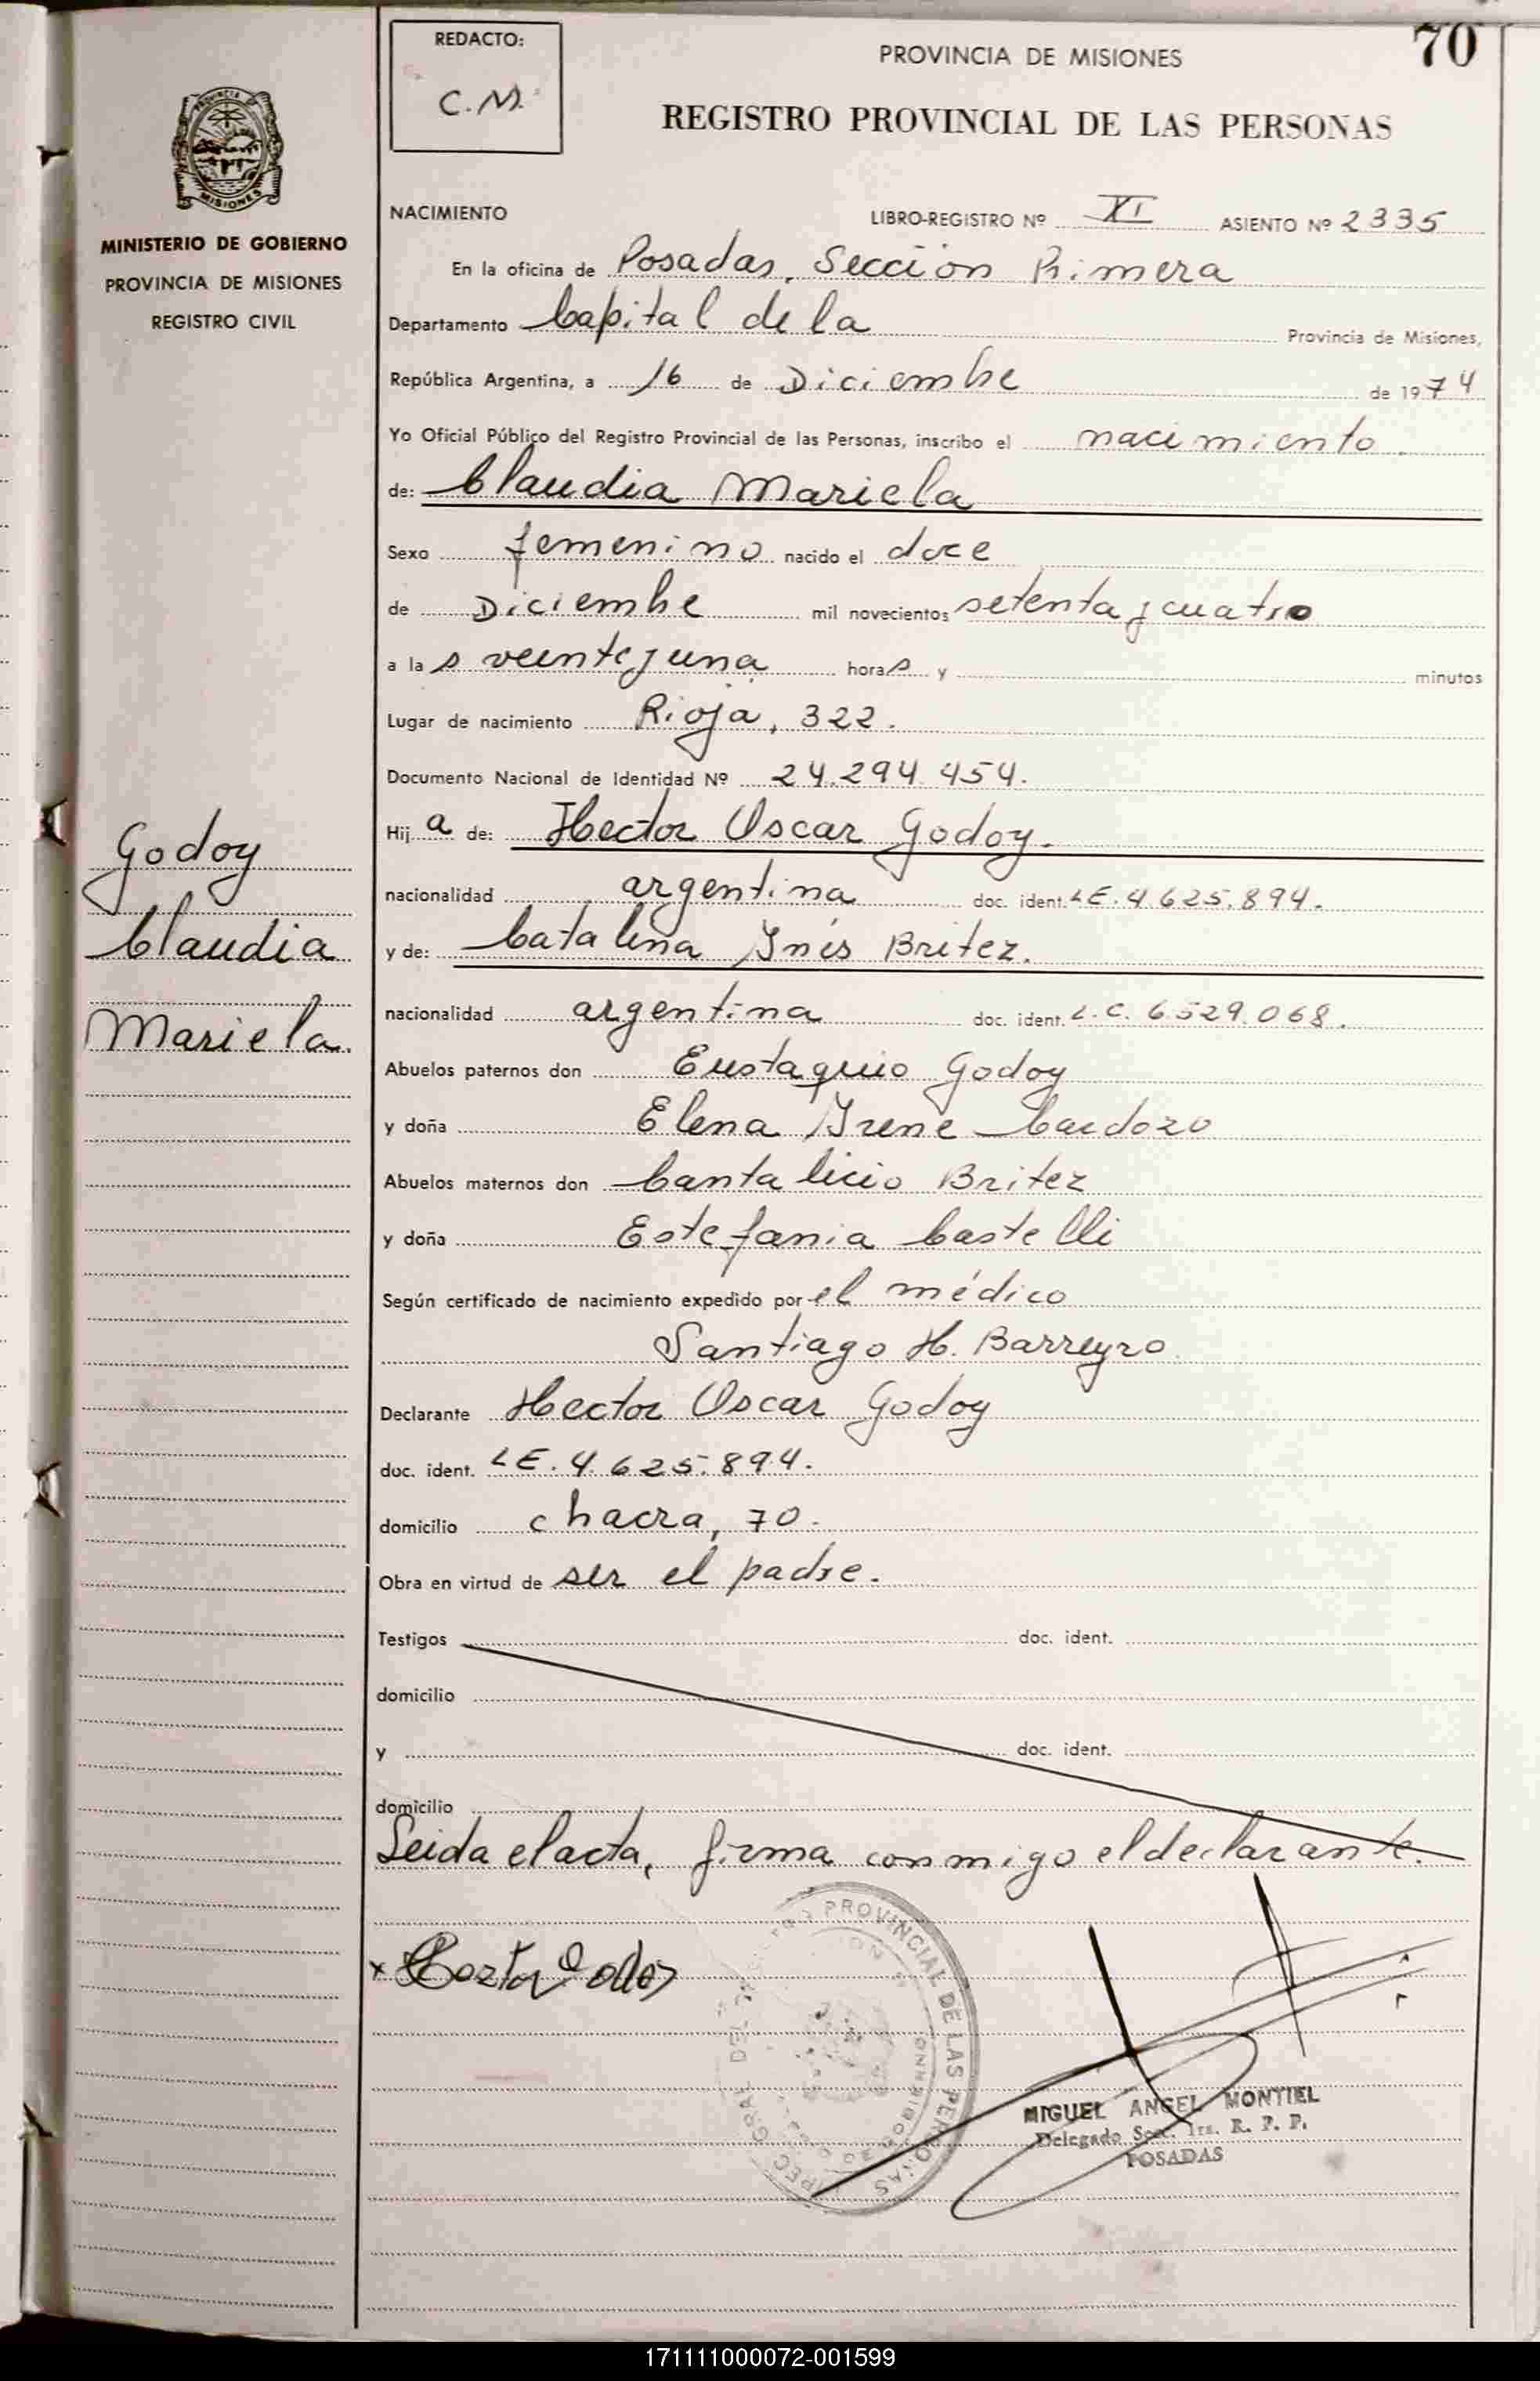 REDACTO:
C.M.
PROVINCIA DE MISIONES
70
REGISTRO PROVINCIAL DE LAS PERSONAS
PROVINCIA
MISIONES
MINISTERIO DE GOBIERNO
PROVINCIA DE MISIONES
REGISTRO CIVIL
NACIMIENTO
LIBRO-REGISTRO Nº XI ASIENTO Nº 2335
En la oficina de Posadas, Sección Primera
Departamento Capital de la Provincia de Misiones,
República Argentina, a 16 de Diciembre de 1974
Yo Oficial Público del Registro Provincial de las Personas, inscribo el nacimiento
de: Claudia Mariela
Sexo femenino nacido el doce
de Diciembre mil novecientos setenta y cuatro
a las veinte y una horas y minutos
Lugar de nacimiento Rioja, 322.
Documento Nacional de Identidad Nº 24.294.454.
Hija de: Hector Oscar Godoy.
nacionalidad argentina doc. ident. LE.4.625.894.
y de: Catalina Inés Britez.
nacionalidad argentina doc. ident. L.C. 6529.068.
Abuelos paternos don Eustaquio Godoy
y doña Elena Irene Cardozo
Abuelos maternos don Cantalicio Britez
y doña Estefania Castelli
Según certificado de nacimiento expedido por el médico
Santiago H. Barreyro
Declarante Hector Oscar Godoy
doc. ident. LE.4.625.894.
domicilio chacra, 70.
Obra en virtud de ser el padre.
Testigos doc. ident.
domicilio
y doc. ident.
domicilio
Leida el acta, firma conmigo el declarante.
Godoy
Claudia
Mariela.
x Hector Godoy
PROVINCIAL DE LAS PERSONAS
MIGUEL ANGEL MONTIEL
Delegado Sec. 1ra. R. P. P.
POSADAS
171111000072-001599